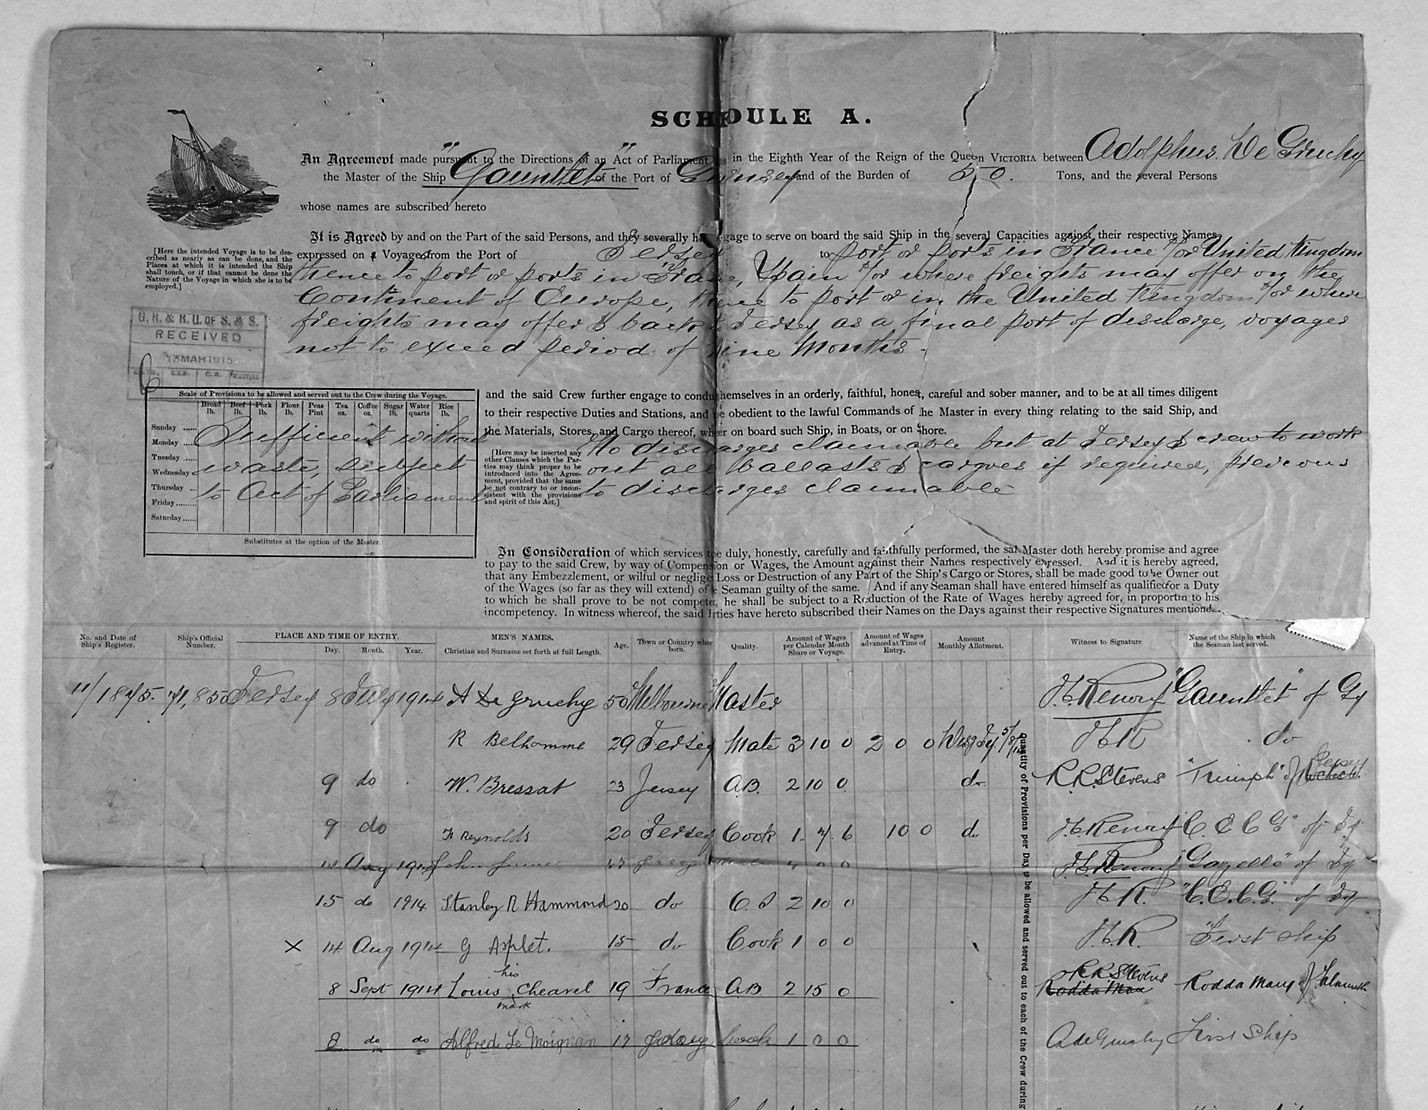 SCHEDULE A.
An Agreement made pursuant to the Directions of an Act of Parliament in the Eighth Year of the Reign of the Queen VICTORIA between Adolphus De Gruchy
the Master of the Ship "Gauntlet" of the Port of and of the Burden of 50. Tons, and the several Persons
whose names are subscribed hereto
It is Agreed by and on the Part of the said Persons, and they severally engage to serve on board the said Ship in the several Capacities against their respective Names
expressed on a Voyage from the Port of Jersey to port or ports in France &/or United Kingdom
thence to port or ports in France, Spain &/or where freights may offer on the
Continent of Europe, thence to port or in the United Kingdom &/or where
freights may offer & back to Jersey as a final port of discharge, voyages
not to exceed period of nine Months.
[Here the intended Voyage is to be des-
cribed as nearly as can be done, and the
Places at which it is intended the Ship
shall touch, or if that cannot be done the
Nature of the Voyage in which she is to be
employed.]
G. R. & R. O. OF S. & S.
RECEIVED
13 MAR 1915
Scale of Provisions to be allowed and served out to the Crew during the Voyage.
Bread lb. Beef lb. Pork lb. Flour lb. Peas Pint Tea oz. Coffee oz. Sugar lb. Water quarts Rice lb.
Sunday
Monday
Tuesday
Wednesday
Thursday
Friday
Saturday
Sufficient without
waste, subject
to Act of Parliament
Substitutes at the option of the Master.
and the said Crew further engage to conduct themselves in an orderly, faithful, honest, careful and sober manner, and to be at all times diligent
to their respective Duties and Stations, and be obedient to the lawful Commands of the Master in every thing relating to the said Ship, and
the Materials, Stores, and Cargo thereof, whether on board such Ship, in Boats, or on shore.
[Here may be inserted any
other Clauses which the Par-
ties may think proper to be
introduced into the Agree-
ment, provided that the same
be not contrary to or incon-
sistent with the provisions
and spirit of this Act.]
No discharges claimable but at Jersey & crew to work
out all ballasts & cargoes if required, previous
to discharges claimable
In Consideration of which services to be duly, honestly, carefully and faithfully performed, the said Master doth hereby promise and agree
to pay to the said Crew, by way of Compensation or Wages, the Amount against their Names respectively expressed. And it is hereby agreed,
that any Embezzlement, or wilful or negligent Loss or Destruction of any Part of the Ship's Cargo or Stores, shall be made good to the Owner out
of the Wages (so far as they will extend) of the Seaman guilty of the same. And if any Seaman shall have entered himself as qualified for a Duty
to which he shall prove to be not competent, he shall be subject to a Reduction of the Rate of Wages hereby agreed for, in proportion to his
incompetency. In witness whereof, the said Parties have hereto subscribed their Names on the Days against their respective Signatures mentioned.
No. and Date of Ship's Register. Ship's Official Number. PLACE AND TIME OF ENTRY. Day. Month. Year. MEN'S NAMES. Christian and Surname set forth at full Length. Age. Town or Country where born. Quality. Amount of Wages per Calendar Month Share or Voyage. Amount of Wages advanced at Time of Entry. Amount Monthly Allotment. Witness to Signature Name of the Ship in which the Seaman last served.
11/1875. 71,850 Jersey 8 July 1914 A De Gruchy 50 Melbourne Master H Renouf "Gauntlet" of Gy
R Belhomme 29 Jersey Mate 3 10 0 2 0 0 H R do
9 do W. Bressat 23 Jersey A.B. 2 10 0 do R.R. Stevens "Triumph" of Jersey
9 do Reynolds 20 Jersey Cook 1 7 6 10 0 do H Renouf "C E C G" of Jy
14 Aug 1914 John H Renouf "Gazelle" of Jy
15 do 1914 Stanley R Hammond 20 do O.S 2 10 0 H R. "C.E.C.G." of Jy
× 14 Aug 1914 G Asplet. 15 do Cook 1 0 0 H R. First Ship
8 Sept 1914 Louis his mark Chearel 19 France A.B. 2 15 0 R R Stevens Rodda Mary of Falmouth
8 do do Alfred Le Moignan 17 Jersey 1 0 0 A de Gruchy First Ship
Quantity of Provisions per Day to be allowed and served out to each of the Crew during